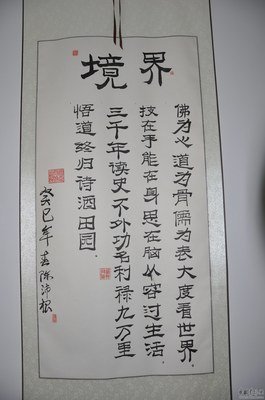 境界
佛为心道为骨儒为表大度看世界
技在手能在身思在脑从容过生活
三千年读史不外功名利禄九万里
悟道终归诗酒田园
癸巳年